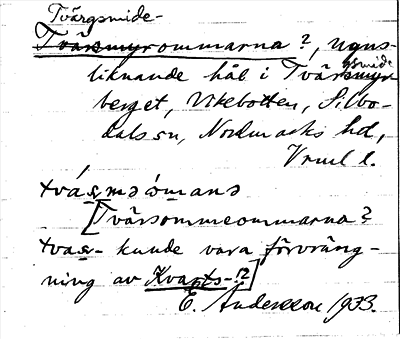 Tvärgsmide-
Tvärsmyrommarna?, ugns-
gsmide
liknande hål i Tvärsmyr
berget, Vikebotten, Silbo-
dals sn, Nordmarks hd,
Vrml l.
[Tvärsommeommarna?
tvas- kunde vara förvräng-
ning av Kvarts-!?]
E. Andersson 1933.